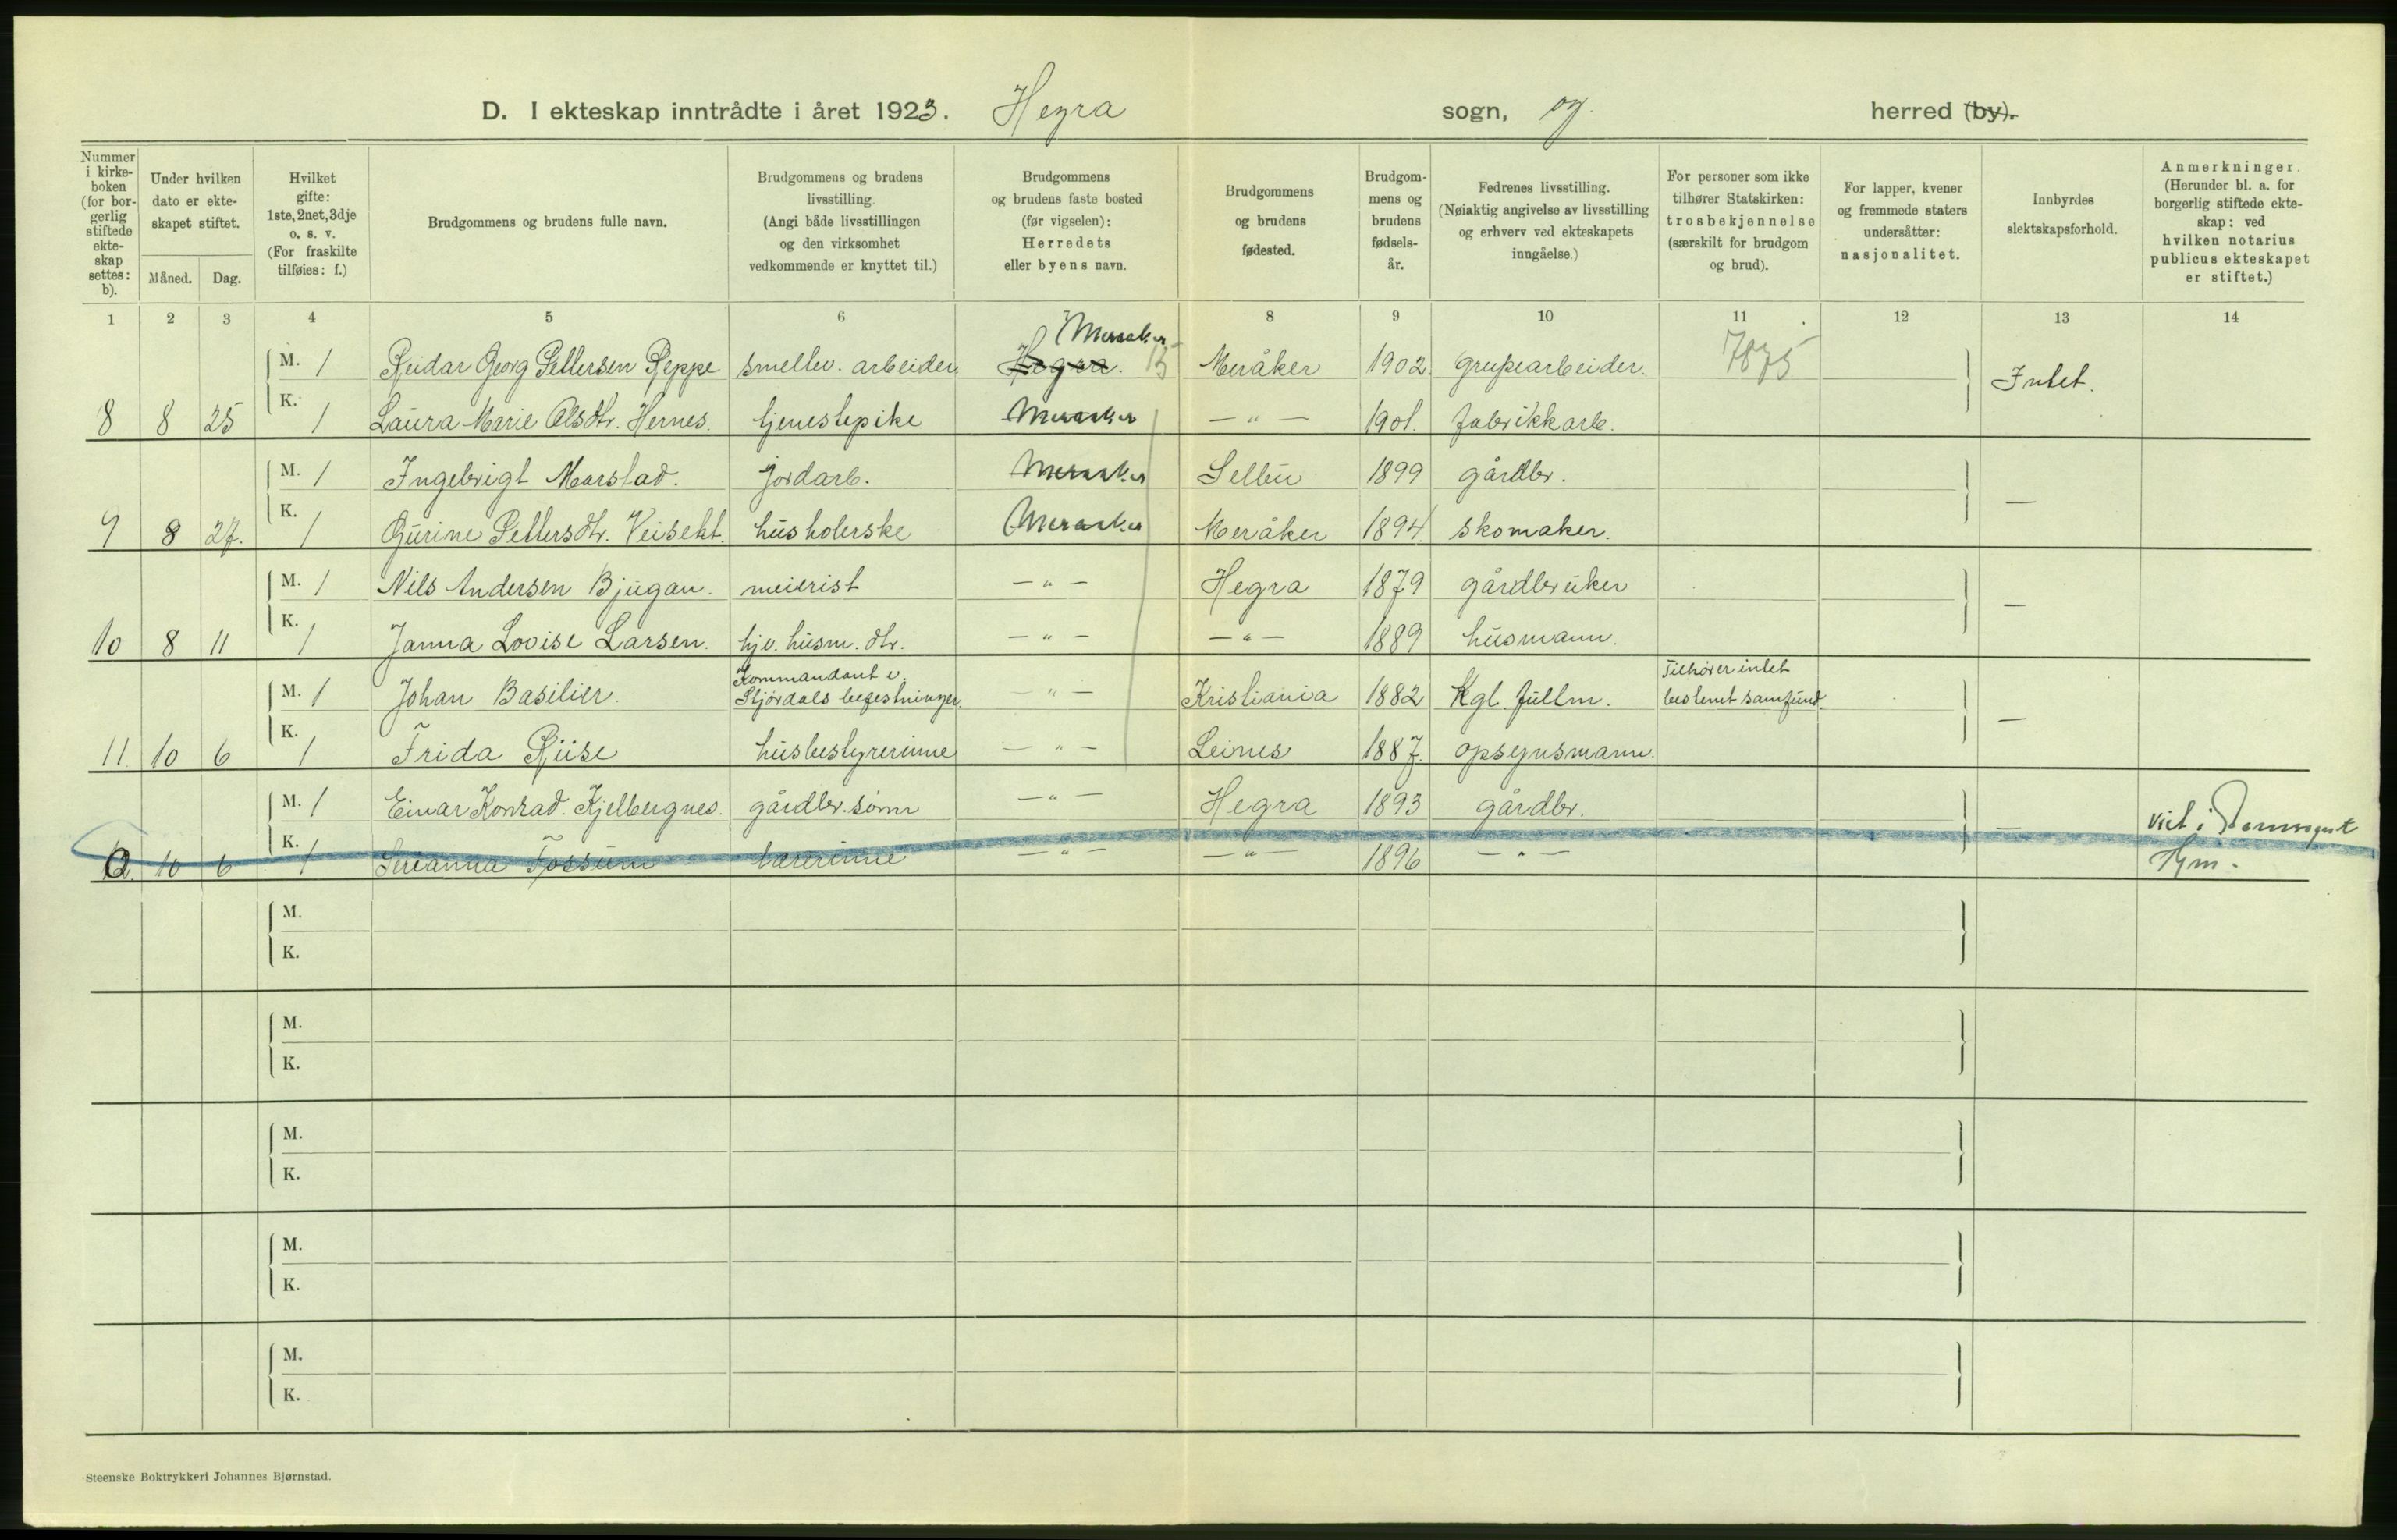 D. I ekteskap inntrådte i året 1923. Hegra sogn, og herred (by).
Nummer i kirkeboken (for borgerlig stiftede ekteskap settes: b).
Under hvilken dato er ekteskapet stiftet.
Måned. Dag.
Hvilket gifte: 1ste, 2net, 3dje o. s. v. (For fraskilte tilføies: f.)
Brudgommens og brudens fulle navn.
Brudgommens og brudens livsstilling. (Angi både livsstillingen og den virksomhet vedkommende er knyttet til.)
Brudgommens og brudens faste bosted (før vigselen): Herredets eller byens navn.
Brudgommens og brudens fødested.
Brudgommens og brudens fødselsår.
Fedrenes livsstilling. (Nøiaktig angivelse av livsstilling og erhverv ved ekteskapets inngåelse.)
For personer som ikke tilhører Statskirken: trosbekjennelse (særskilt for brudgom og brud).
For lapper, kvener og fremmede staters undersåtter: nasjonalitet.
Innbyrdes slektskapsforhold.
Anmerkninger. (Herunder bl. a. for borgerlig stiftede ekteskap: ved hvilken notarius publicus ekteskapet er stiftet.)
1 2 3 4 5 6 7 8 9 10 11 12 13 14
Meraker
M. 1 Reidar Georg Pettersen Reppe smeltev. arbeider Hegra. 15 Meråker 1902. grupearbeider. 7875 Intet.
8 8 25 K. 1 Laura Marie Olsdtr. Hernes. tjenestepike Meraker — " — 1901. fabrikkarb.
M. 1 Ingebrigt Marstad. jordarb. Meraker Selbu 1899 gårdbr. —
9 8 27. K. 1 Gurine Pettersdtr. Veiseht. husholerske Meraker Meråker 1894 skomaker.
M. 1 Nils Andersen Bjugan. meierist — " — Hegra 1879 gårdbruker —
10 8 11 K. 1 Janna Lovise Larsen. hjv. husm. dtr. — " — — " — 1889 husmann.
Kommandant v. Tilhører intet
M. 1 Johan Basilier. Stjørdals befestninger. — " — Kristiania 1882 Kgl. fullm. bestemt samfund. —
11 10 6 K. 1 Frida Riise husbestyrerinne — " — Leines 1887. opsynsmann.
M. 1 Einar Konrad Kjelbergnes. gårdbr. sønn — " — Hegra 1893 gårdbr. — Viet i
12 10 6 K. 1 Serianna Fossum lærerinne — " — — " — 1896 — " — Thjm.
M.
K.
M.
K.
M.
K.
M.
K.
M.
K.
Steenske Boktrykkeri Johannes Bjørnstad.